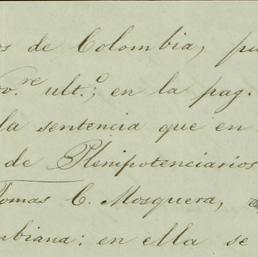 os de Colombia, pu
ov.re ult.o; en la pag.
la sentencia que en
de Plenipotenciarios
Tomas C. Mosquera,
mbiana: en ella se